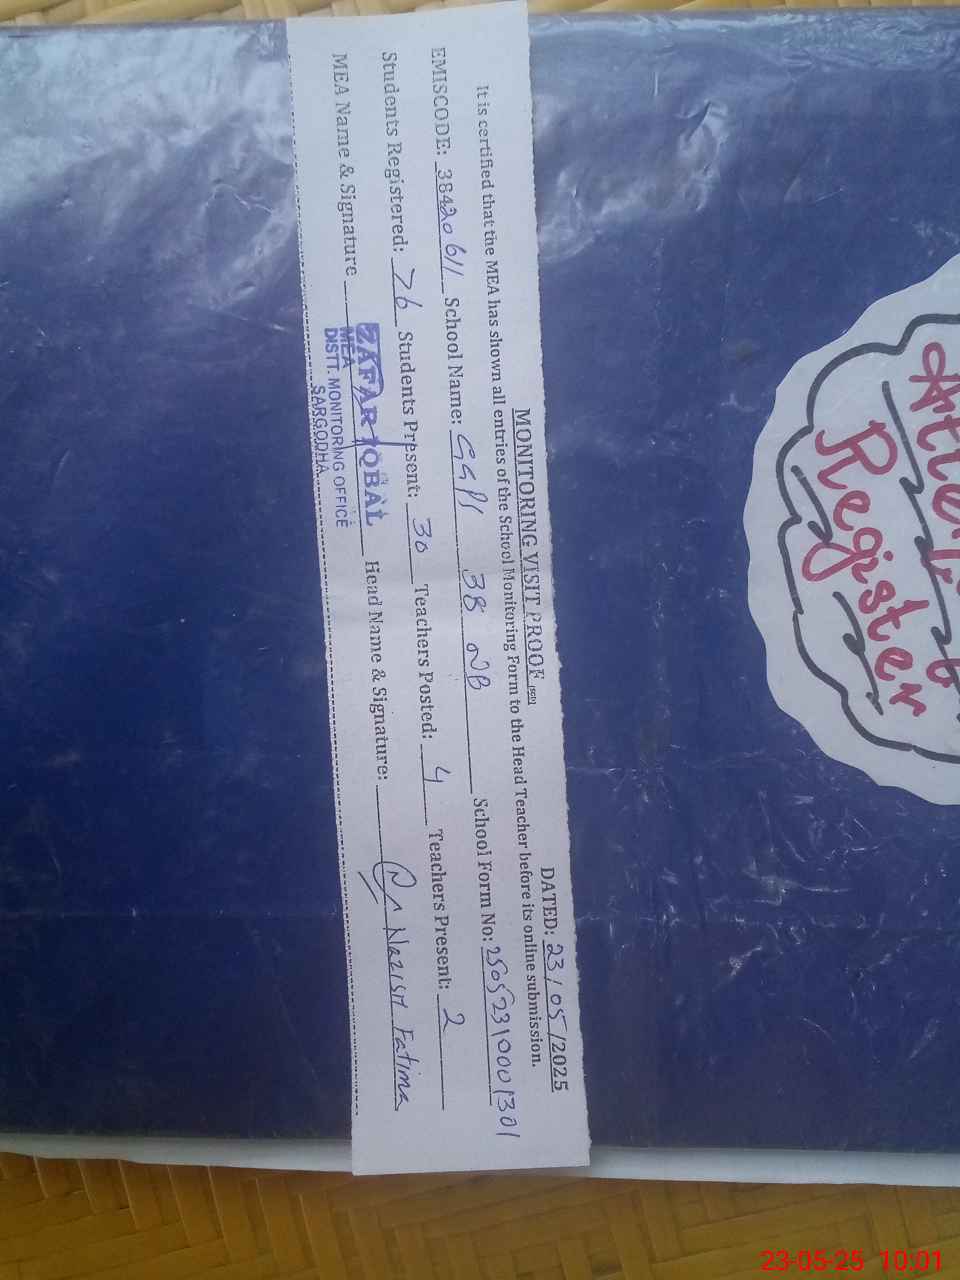 MONITORING VISIT PROOF
DATED: 23/05/2025
It is certified that the MEA has shown all entries of the School Monitoring Form to the Head Teacher before its online submission.
EMISCODE: 38420611 School Name: GGPS 38 NB School Form No: 25052310001301
Students Registered: 76 Students Present: 30 Teachers Posted: 4 Teachers Present: 2
MEA Name & Signature Head Name & Signature: Fatima
ZAFAR IQBAL
MEA
DISTT. MONITORING OFFICE
SARGODHA
Register
23-05-25 10:01